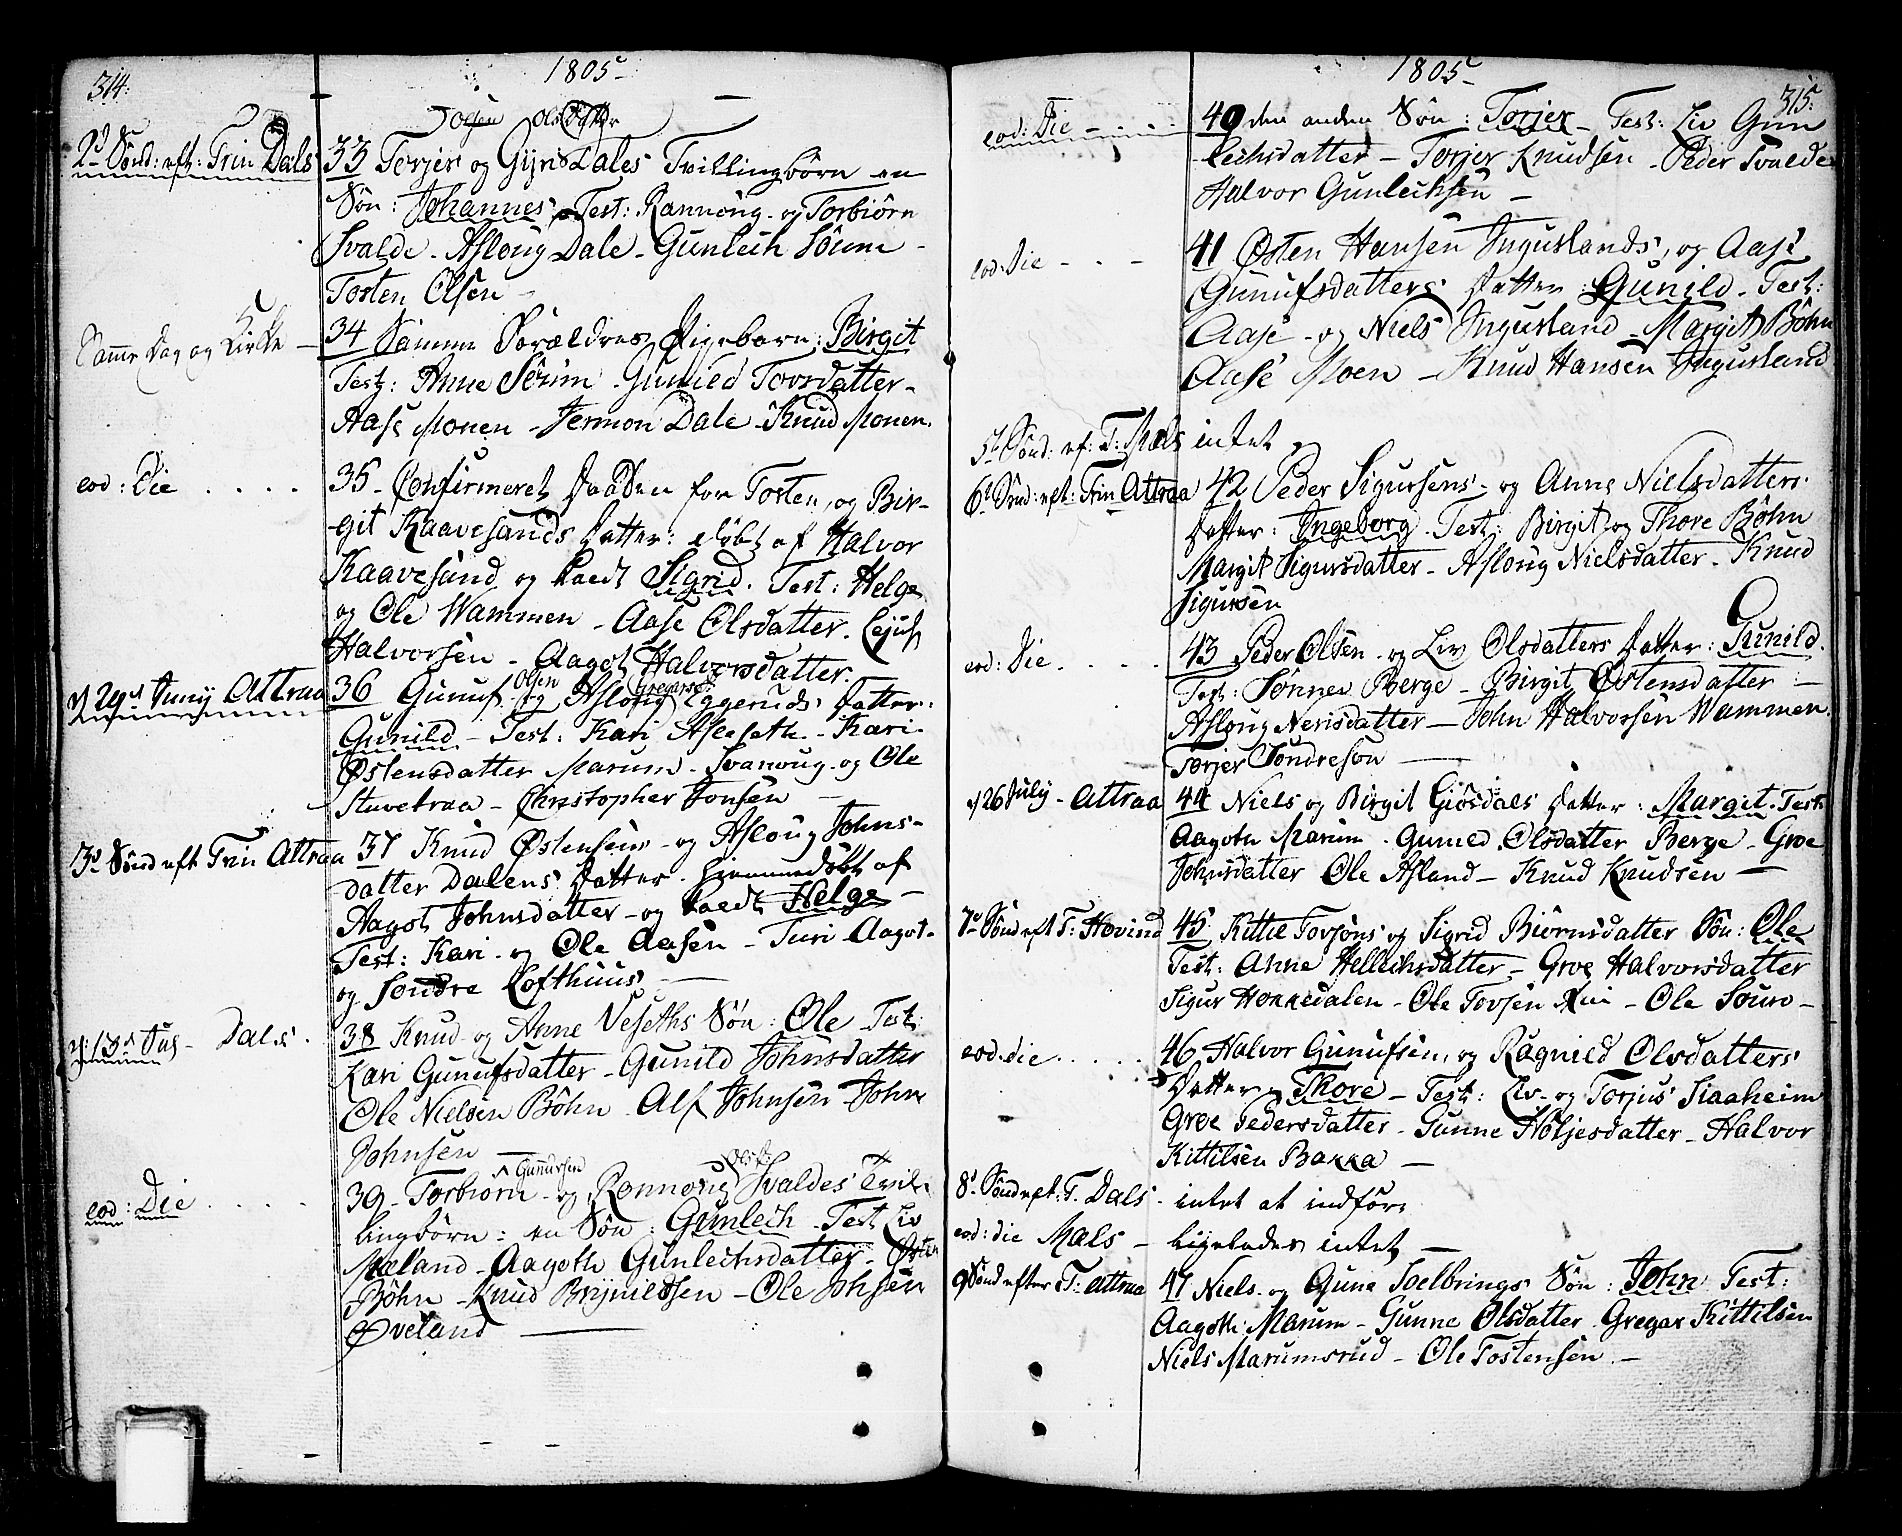 314.
1805
2d Sönd: eft: Trin Dals
33 Torjer og Gÿro Dales Tvillingbörn en
Sön: Johannes. Test: Rannoug og Torbiörn
Svalde - Asloug Dale - Gunlech
Tosten Olsen -
Samme Dag og Kirke -
34 Samme Forældres Pigebarn: Birgit
Test: Anne - Gunild Tovsdatter -
Aase Monen - Jermon Dale - Knud Monen.
eod: Die . . . .
35 - Confirmeret Daaben for Tosten, og Bir-
git Kaavesands Datter: döbt af Halvor
Kaavesand og kaldt Sigrid. Test: Helge
og Ole Wammen - Aase Olsdatter.
Halvorsen - Aagot Halvorsdatter.
29d Junij Attraa
Olsen
36 Gunuf og Asloug Eggeruds Datter:
Gunild - Test: Kari - Kari
Östensdatter Marum - Svanoug og Ole
Stuvetraa - Christopher Jonsen -
3d Sönd eft Trin Attraa
37 Knud Östensens - og Asloug Johns-
datter Dalens Datter hiemmedöbt af
Aagot Johnsdatter - og kaldt Helge -
Test: Kari - og Ole Aasen - Turi Aagot -
og Sondre Lofthuus -
Dals.
38 Knud - og Anne Veseths Sön: Ole - Test:
Kari Gunufsdatter - Gunild Johnsdatter
Ole Nielsen Böhn - Alf Johnsen - John
Johnsen -
Gunufsen
eod: Die . . . .
39 - Torbiörn - og Rannoug Svaldes Tvil-
lingbörn: en Sön: Gunlech - Test Liv
Mæland - Aagoth Gunlechsdatter - Östen
Böhn - Knud Brÿnildsen - Ole Johsen
Öveland
1805
315.
eod: Die - . - . -
40 den anden Sön: Torjer - Test: Liv Gun
lechsdatter - Torjer Knudsen - Peder Svalde
Halvor Gunlechsen -
eod: Die - - -
41 Östen Hansen Inguslands, og Aase
Gunufsdatters Datter: Gunild - Test:
Aase - og Niels Ingusland - Margit Böhn
Aase Moen - Knud Hansen Ingusland
5t Sönd: ef: T: Mæls intet
6t Sönd: eft: Trin Attraa
42 Peder Sigursens - og Anne Nielsdatters
Datter: Ingeborg. Test: Birgit og Thore Böhn
Margit Sigursdatter - Asloug Nielsdatter - Knud
Sigursen
eod: Die . . . .
43 Peder Olsen - og Liv Olsdatters Datter: Gunild.
Test: Sönnev Berge - Birgit Östensdatter -
Asloug Nerisdatter - John Halvorsen Wammen.
Torjer Sondresön -
d 26 July - Attraa
44 Niels og Birgit Giösdals Datter: Margit. Test:
Aagoth Marum - Guned Olsdatter Berge - Groe
Johnsdatter Ole Asland - Knud Knudsen -
7d Sönd eft T: Hovind
45 Kittil Tovsöns og Sigrid Biörnsdatter Sön: Ole
Test: Anne Hellechsdatter - Groe Halvorsdatter
Sigur Hokkedalen - Ole Tovsen - Ole
eod: die . . . . .
46 Halvor Gunufsen og Ragnild Olsdatters
Datter Thore - Test: Liv - og Torjus Staaheim
Groe Pedersdatter - Gunne Höljesdatter - Halvor
Kittilsen Bakka -
8d Sönd eft: T. Dals - intet at indföre
eod: die Mæls - ligeledes intet -
9 Sönd efter T: Attraa
47 Niels - og Gune Sön: John Test:
Aagoth Marum - Gunne Olsdatter - Gregar Kittilsen
Niels Marumsrud - Ole Tostensen. -